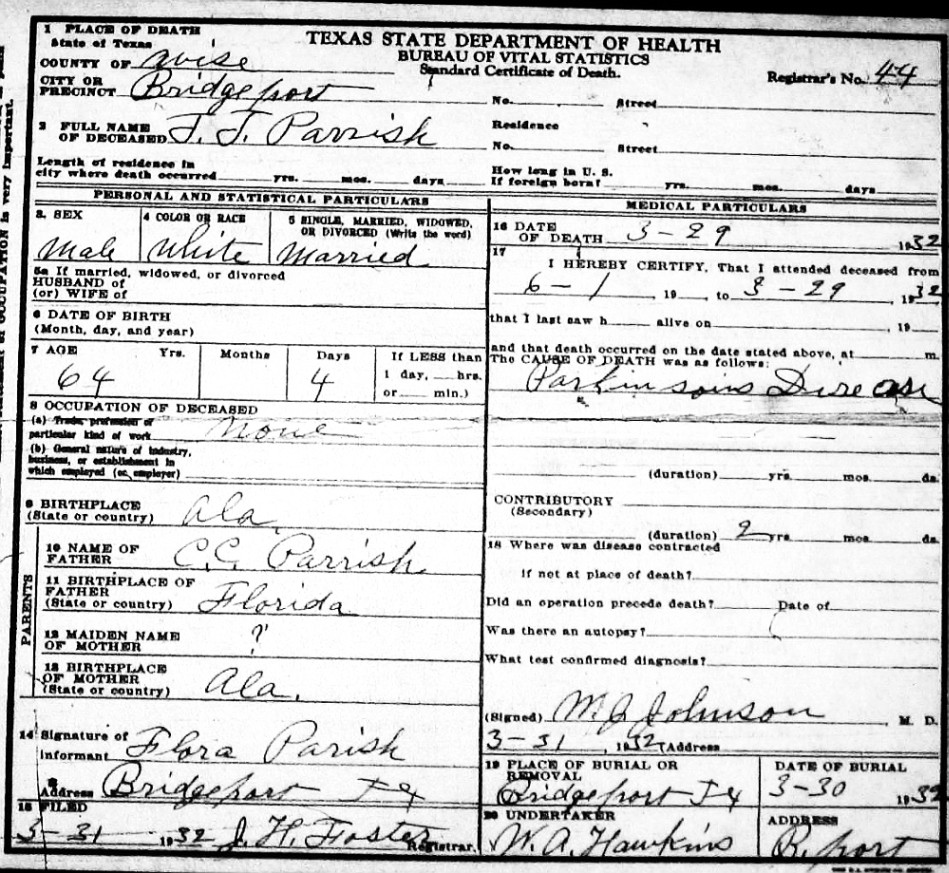 TEXAS STATE DEPARTMENT OF HEALTH
BUREAU OF VITAL STATISTICS
Standard Certificate of Death.
Registrar's No. 44
1 PLACE OF DEATH
State of Texas
COUNTY OF Wise
CITY OR PRECINCT Bridgeport
No. Street
2 FULL NAME OF DECEASED J. J. Parrish
Residence
No. Street
Length of residence in city where death occurred yrs. mos. days
How long in U. S. If foreign born? yrs. mos. days
PERSONAL AND STATISTICAL PARTICULARS
3. SEX
Male
4 COLOR OR RACE
White
5 SINGLE, MARRIED, WIDOWED, OR DIVORCED (Write the word)
Married
5a If married, widowed, or divorced
HUSBAND of
(or) WIFE of
6 DATE OF BIRTH
(Month, day, and year)
7 AGE Yrs. Months Days If LESS than
64 4 1 day, hrs.
or min.)
8 OCCUPATION OF DECEASED
(a) Trade, profession or particular kind of work none
(b) General nature of industry, business, or establishment in which employed (or employer)
9 BIRTHPLACE
(State or country) Ala.
PARENTS
10 NAME OF FATHER C.C. Parrish
11 BIRTHPLACE OF FATHER
(State or country) Florida
12 MAIDEN NAME OF MOTHER ?
13 BIRTHPLACE OF MOTHER
(State or country) Ala.
14 Signature of Informant Flora Parish
Address Bridgeport Tx
15 FILED
3-31 1932 J. H. Foster Registrar.
MEDICAL PARTICULARS
16 DATE OF DEATH 3-29 1932
17
I HEREBY CERTIFY, That I attended deceased from
6-1, 19 , to 3-29, 1932
that I last saw h alive on , 19
and that death occurred on the date stated above, at m.
The CAUSE OF DEATH was as follows:
Parkinsons Disease
(duration) yrs. mos. ds.
CONTRIBUTORY
(Secondary)
(duration) 2 yrs. mos. ds.
18 Where was disease contracted
if not at place of death?
Did an operation precede death? Date of
Was there an autopsy?
What test confirmed diagnosis?
(Signed) W. J. Johnson, M. D.
3-31, 1932 Address
19 PLACE OF BURIAL OR REMOVAL
Bridgeport Tx
DATE OF BURIAL
3-30 1932
20 UNDERTAKER
W. A. Hawkins
ADDRESS
B. port
OCCUPATION is very important.